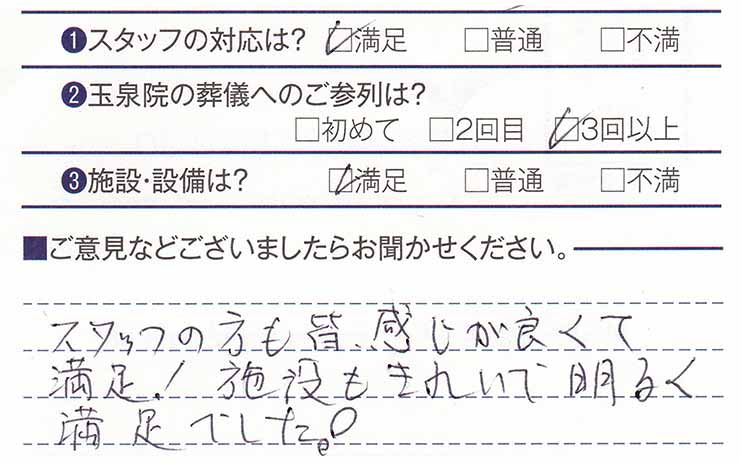 ❶スタッフの対応は? ☑満足 □普通 □不満
❷玉泉院の葬儀へのご参列は?
□初めて □2回目 ☑3回以上
❸施設・設備は? ☑満足 □普通 □不満
■ご意見などございましたらお聞かせください。
スタッフの方も皆、感じが良くて
満足!施設もきれいで明るく
満足でした。